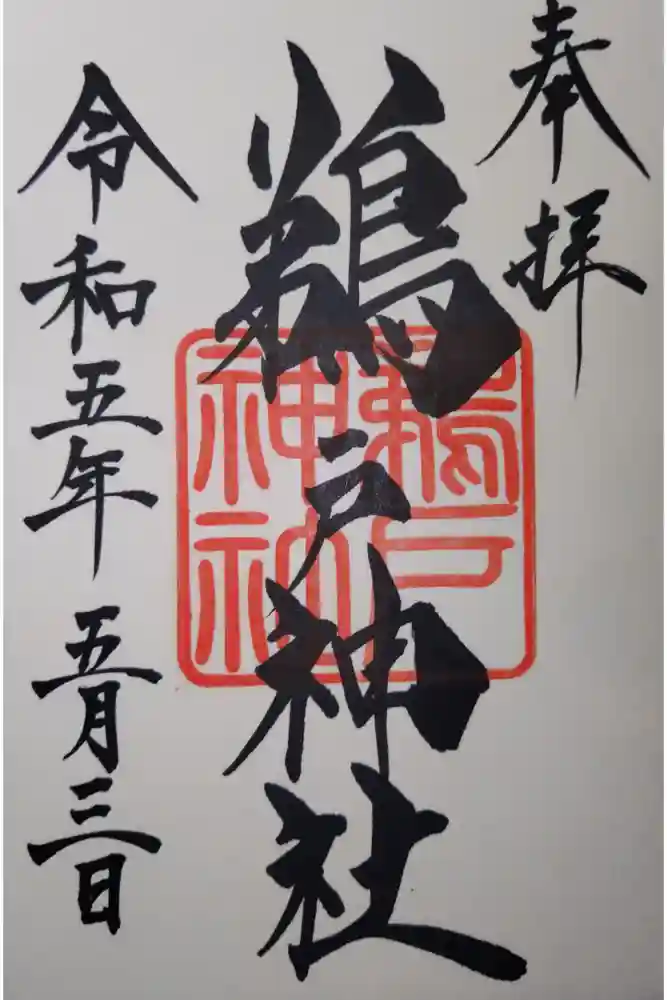 奉拝
鵜戸神社
鵜戸
神社
令和五年五月三日